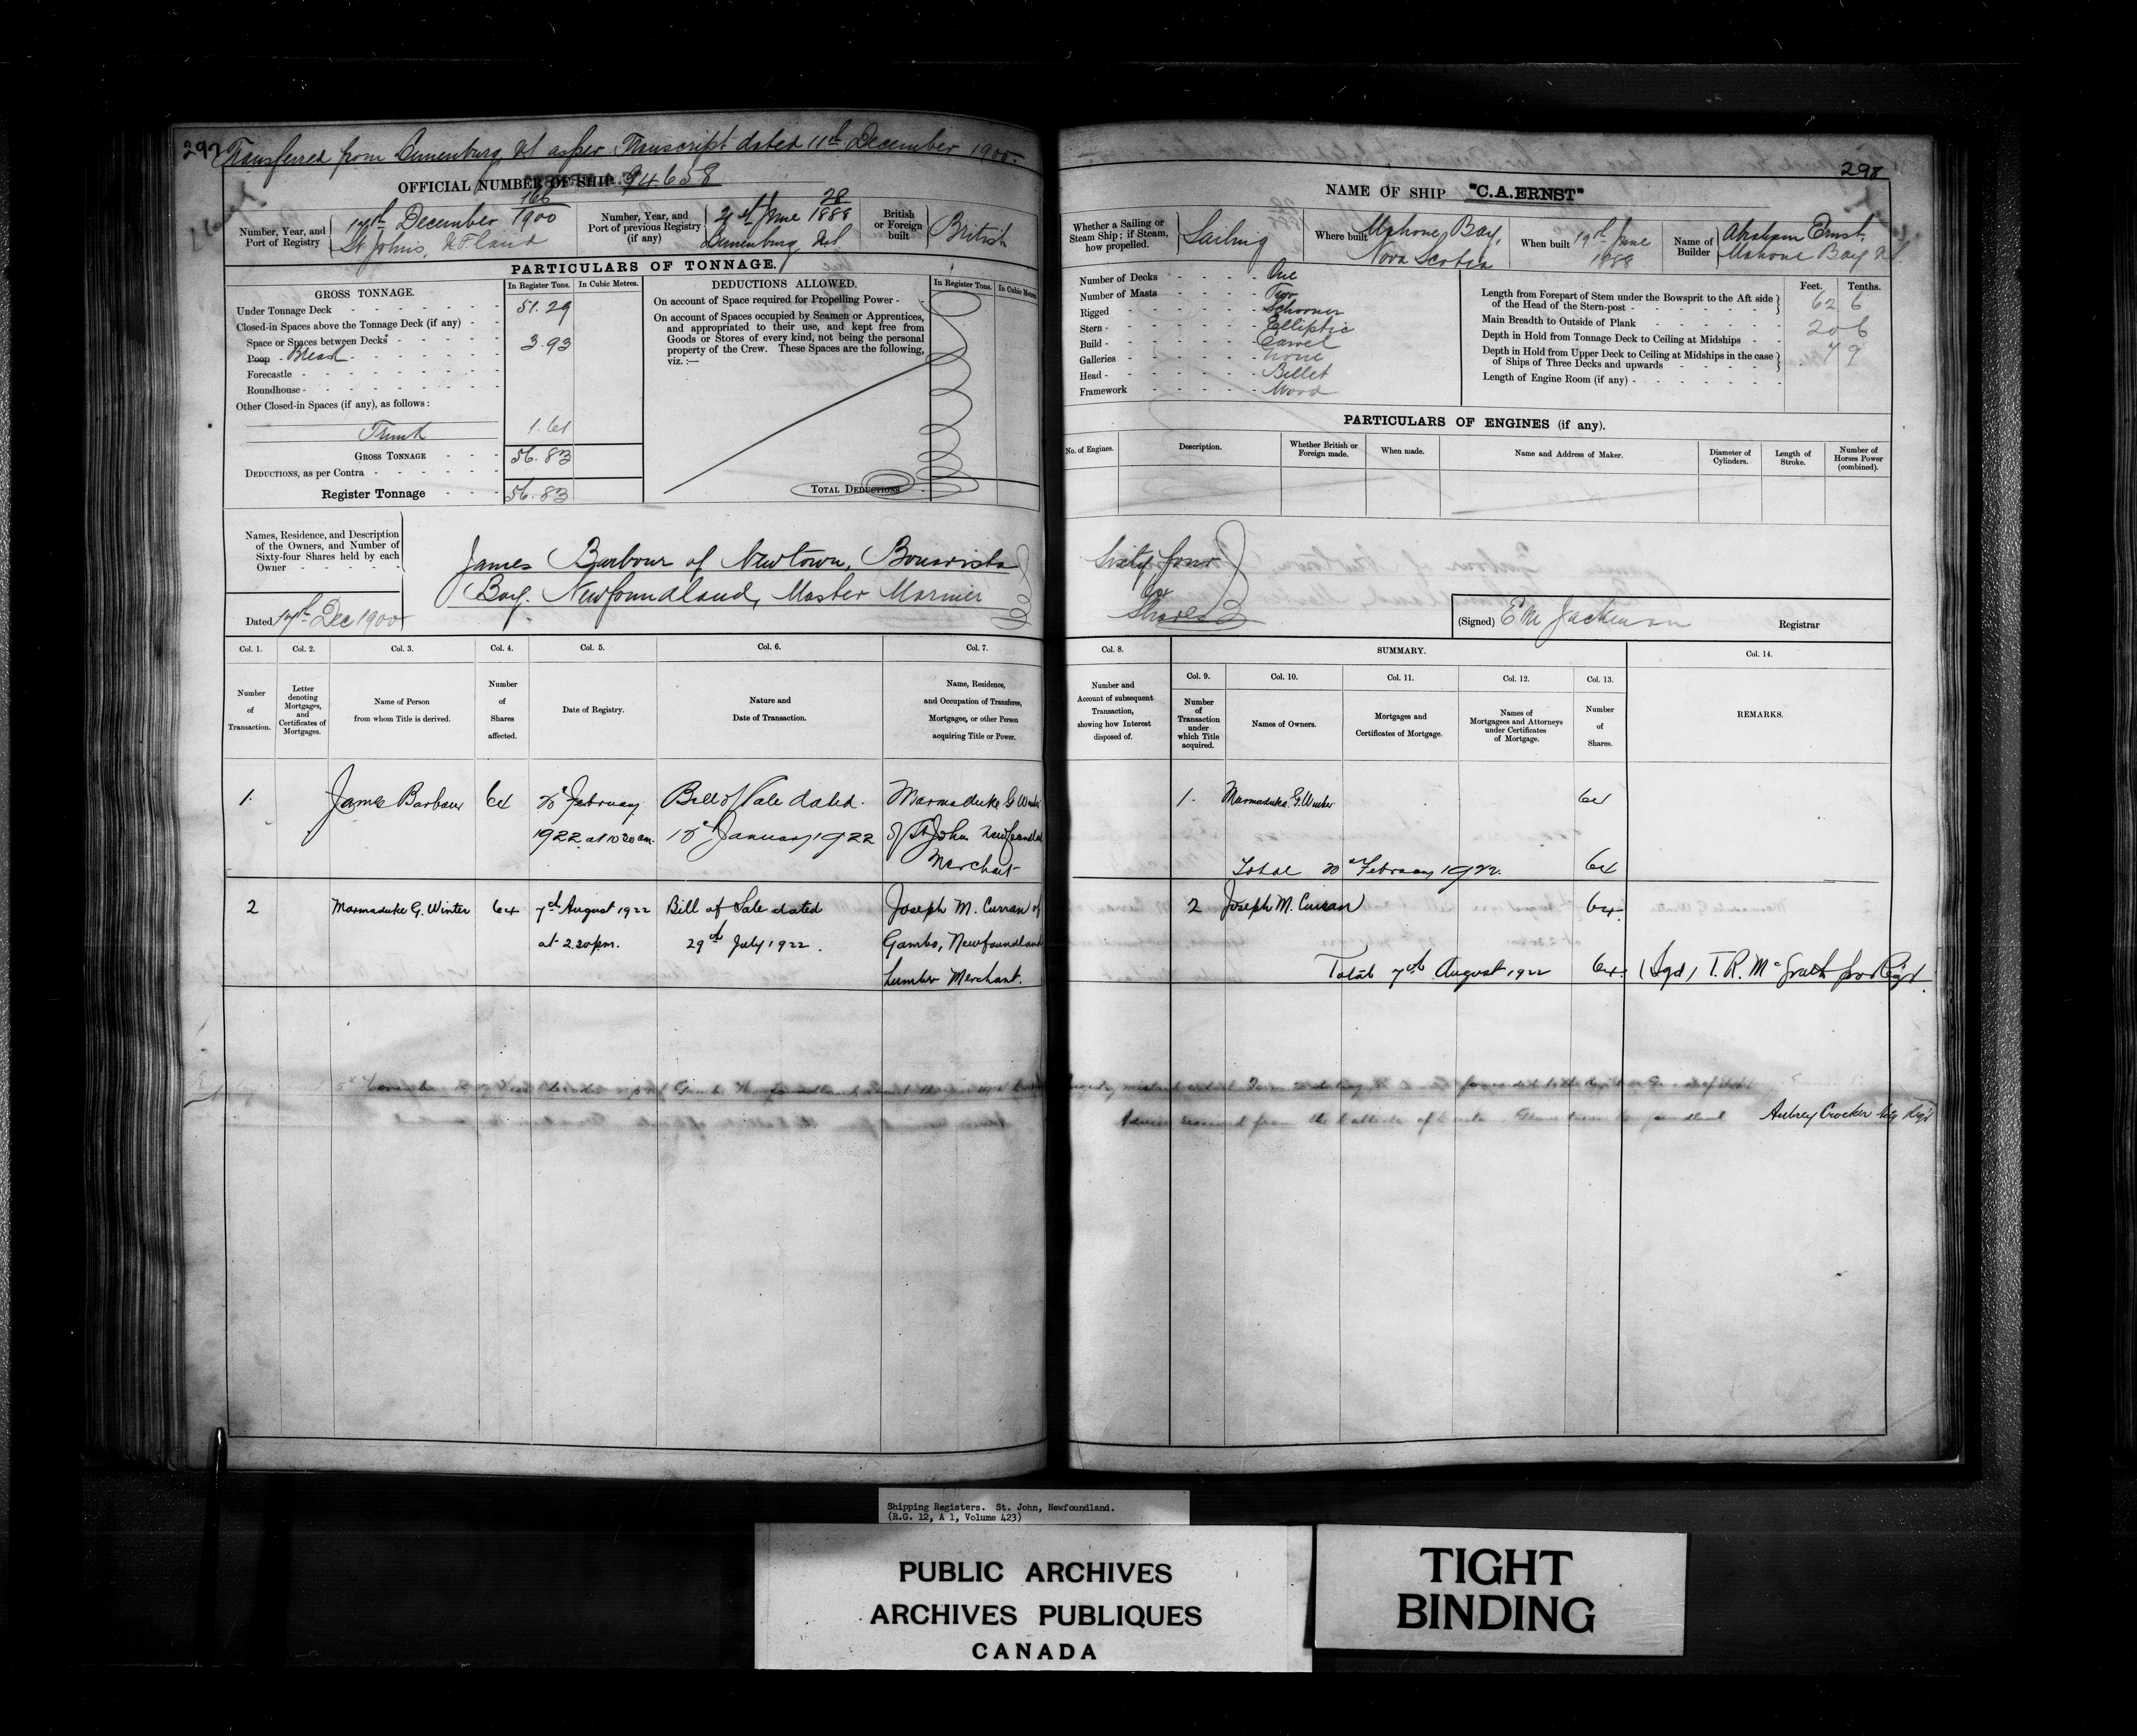 297
Transferred from Lunenburg NS as per Transcript dated 11th December 1900.
OFFICIAL NUMBER OF SHIP 94658
Number, Year, and
Port of Registry
166
1900
14th December
St Johns, NFland
Number, Year, and
Port of previous Registry
(if any)
21st June 28
1888
Lunenburg N.S.
British
or Foreign
built
British
PARTICULARS OF TONNAGE.
GROSS TONNAGE.
In Register Tons.
In Cubic Metres.
Under Tonnage Deck 51.29
Closed-in Spaces above the Tonnage Deck (if any)
Space or Spaces between Decks
Poop Bread 3.93
Forecastle
Roundhouse
Other Closed-in Spaces (if any), as follows:
Trunk 1.61
GROSS TONNAGE 56.83
DEDUCTIONS, as per Contra
Register Tonnage 56.83
DEDUCTIONS ALLOWED.
In Register Tons.
In Cubic Metres.
On account of Space required for Propelling Power
On account of Spaces occupied by Seamen or Apprentices,
and appropriated to their use, and kept free from
Goods or Stores of every kind, not being the personal
property of the Crew. These Spaces are the following,
viz.:—
TOTAL DEDUCTIONS
Names, Residence, and Description
of the Owners, and Number of
Sixty-four Shares held by each
Owner
James Barbour of Newtown, Bonavista
Bay. Newfoundland, Master Mariner
Dated 14th Dec 1900
Col. 1.
Col. 2.
Col. 3.
Col. 4.
Col. 5.
Col. 6.
Col. 7.
Number
of
Transaction.
Letter
denoting
Mortgages,
and
Certificates of
Mortgages.
Name of Person
from whom Title is derived.
Number
of
Shares
affected.
Date of Registry.
Nature and
Date of Transaction.
Name, Residence,
and Occupation of Transferee,
Mortgagee, or other Person
acquiring Title or Power.
1. James Barbour 64 February Bill of Sale dated Marmaduke G Winter
1922 at 10 30 am. January 1922 of St John Newfoundland
Merchant
2 Marmaduke G. Winter 64 7th August 1922 Bill of Sale dated Joseph M. Curran of
at 2.20pm. 29th July 1922. Gambo, Newfoundland
Lumber Merchant.
298
NAME OF SHIP "C.A.ERNST"
Whether a Sailing or
Steam Ship; if Steam,
how propelled.
Sailing
Where built
Mahone Bay,
Nova Scotia
When built
19th June
1888
Name of
Builder
Abraham Ernst
Mahone Bay NS.
Number of Decks One
Number of Masts Two
Rigged Schooner
Stern Elliptic
Build Carvel
Galleries None
Head Billet
Framework Wood
Feet. Tenths.
Length from Forepart of Stem under the Bowsprit to the Aft side
of the Head of the Stern-post 62 6
Main Breadth to Outside of Plank 20 6
Depth in Hold from Tonnage Deck to Ceiling at Midships 7 9
Depth in Hold from Upper Deck to Ceiling at Midships in the case
of Ships of Three Decks and upwards
Length of Engine Room (if any)
PARTICULARS OF ENGINES (if any).
No. of Engines.
Description.
Whether British or
Foreign made.
When made.
Name and Address of Maker.
Diameter of
Cylinders.
Length of
Stroke.
Number of
Horses Power
(combined).
Sixty four
64
Shares
(Signed)
Registrar
Col. 8.
SUMMARY.
Col. 14.
Col. 9.
Col. 10.
Col. 11.
Col. 12.
Col. 13.
Number and
Account of subsequent
Transaction,
showing how Interest
disposed of.
Number
of
Transaction
under
which Title
acquired.
Names of Owners.
Mortgages and
Certificates of Mortgage.
Names of
Mortgagees and Attorneys
under Certificates
of Mortgage.
Number
of
Shares.
REMARKS.
1. Marmaduke G. Winter 64
Total February 1922. 64
2 Joseph M. Curran 64.
Total 7th August 1922 64. (Sgd) T. R. McGrath pro Reg'r.
Aubrey Crocker Actg Reg'r
Shipping Registers. St. John, Newfoundland.
(R.G. 12, A 1, Volume 423)
PUBLIC ARCHIVES
ARCHIVES PUBLIQUES
CANADA
TIGHT
BINDING